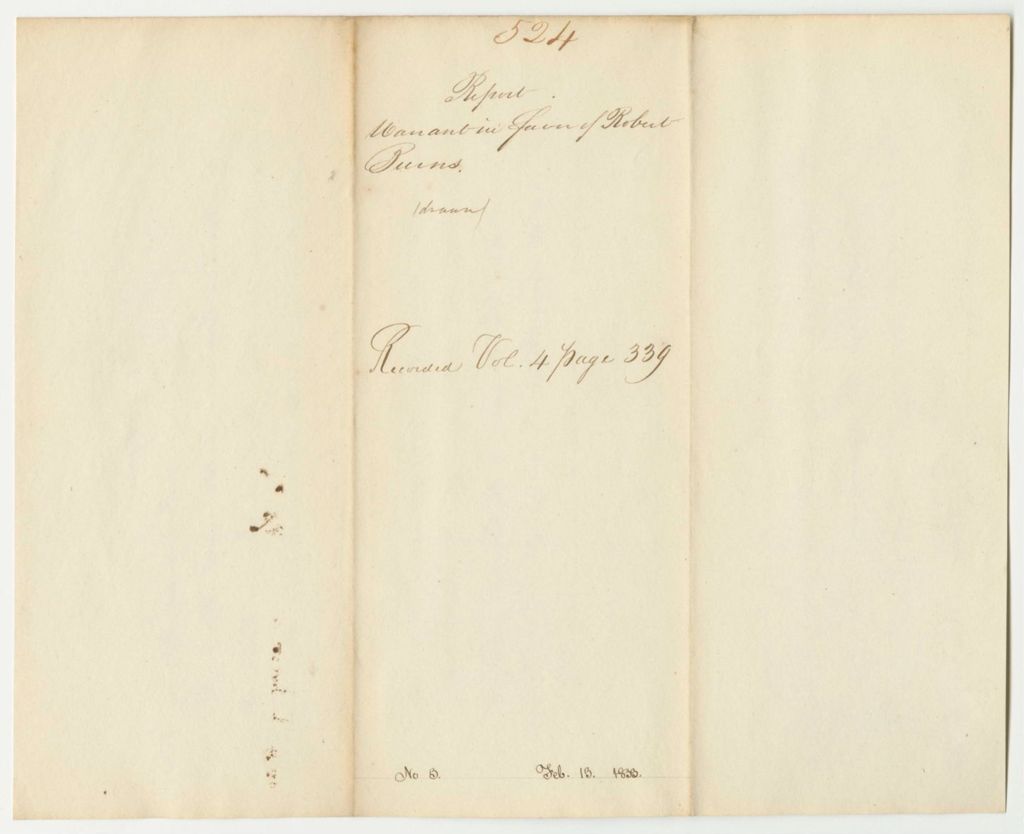 524
Report.
Warrant in favor of Robert
Burns.
(drawn)
Recorded Vol. 4 page 339
No 5. Feb. 13. 1833.